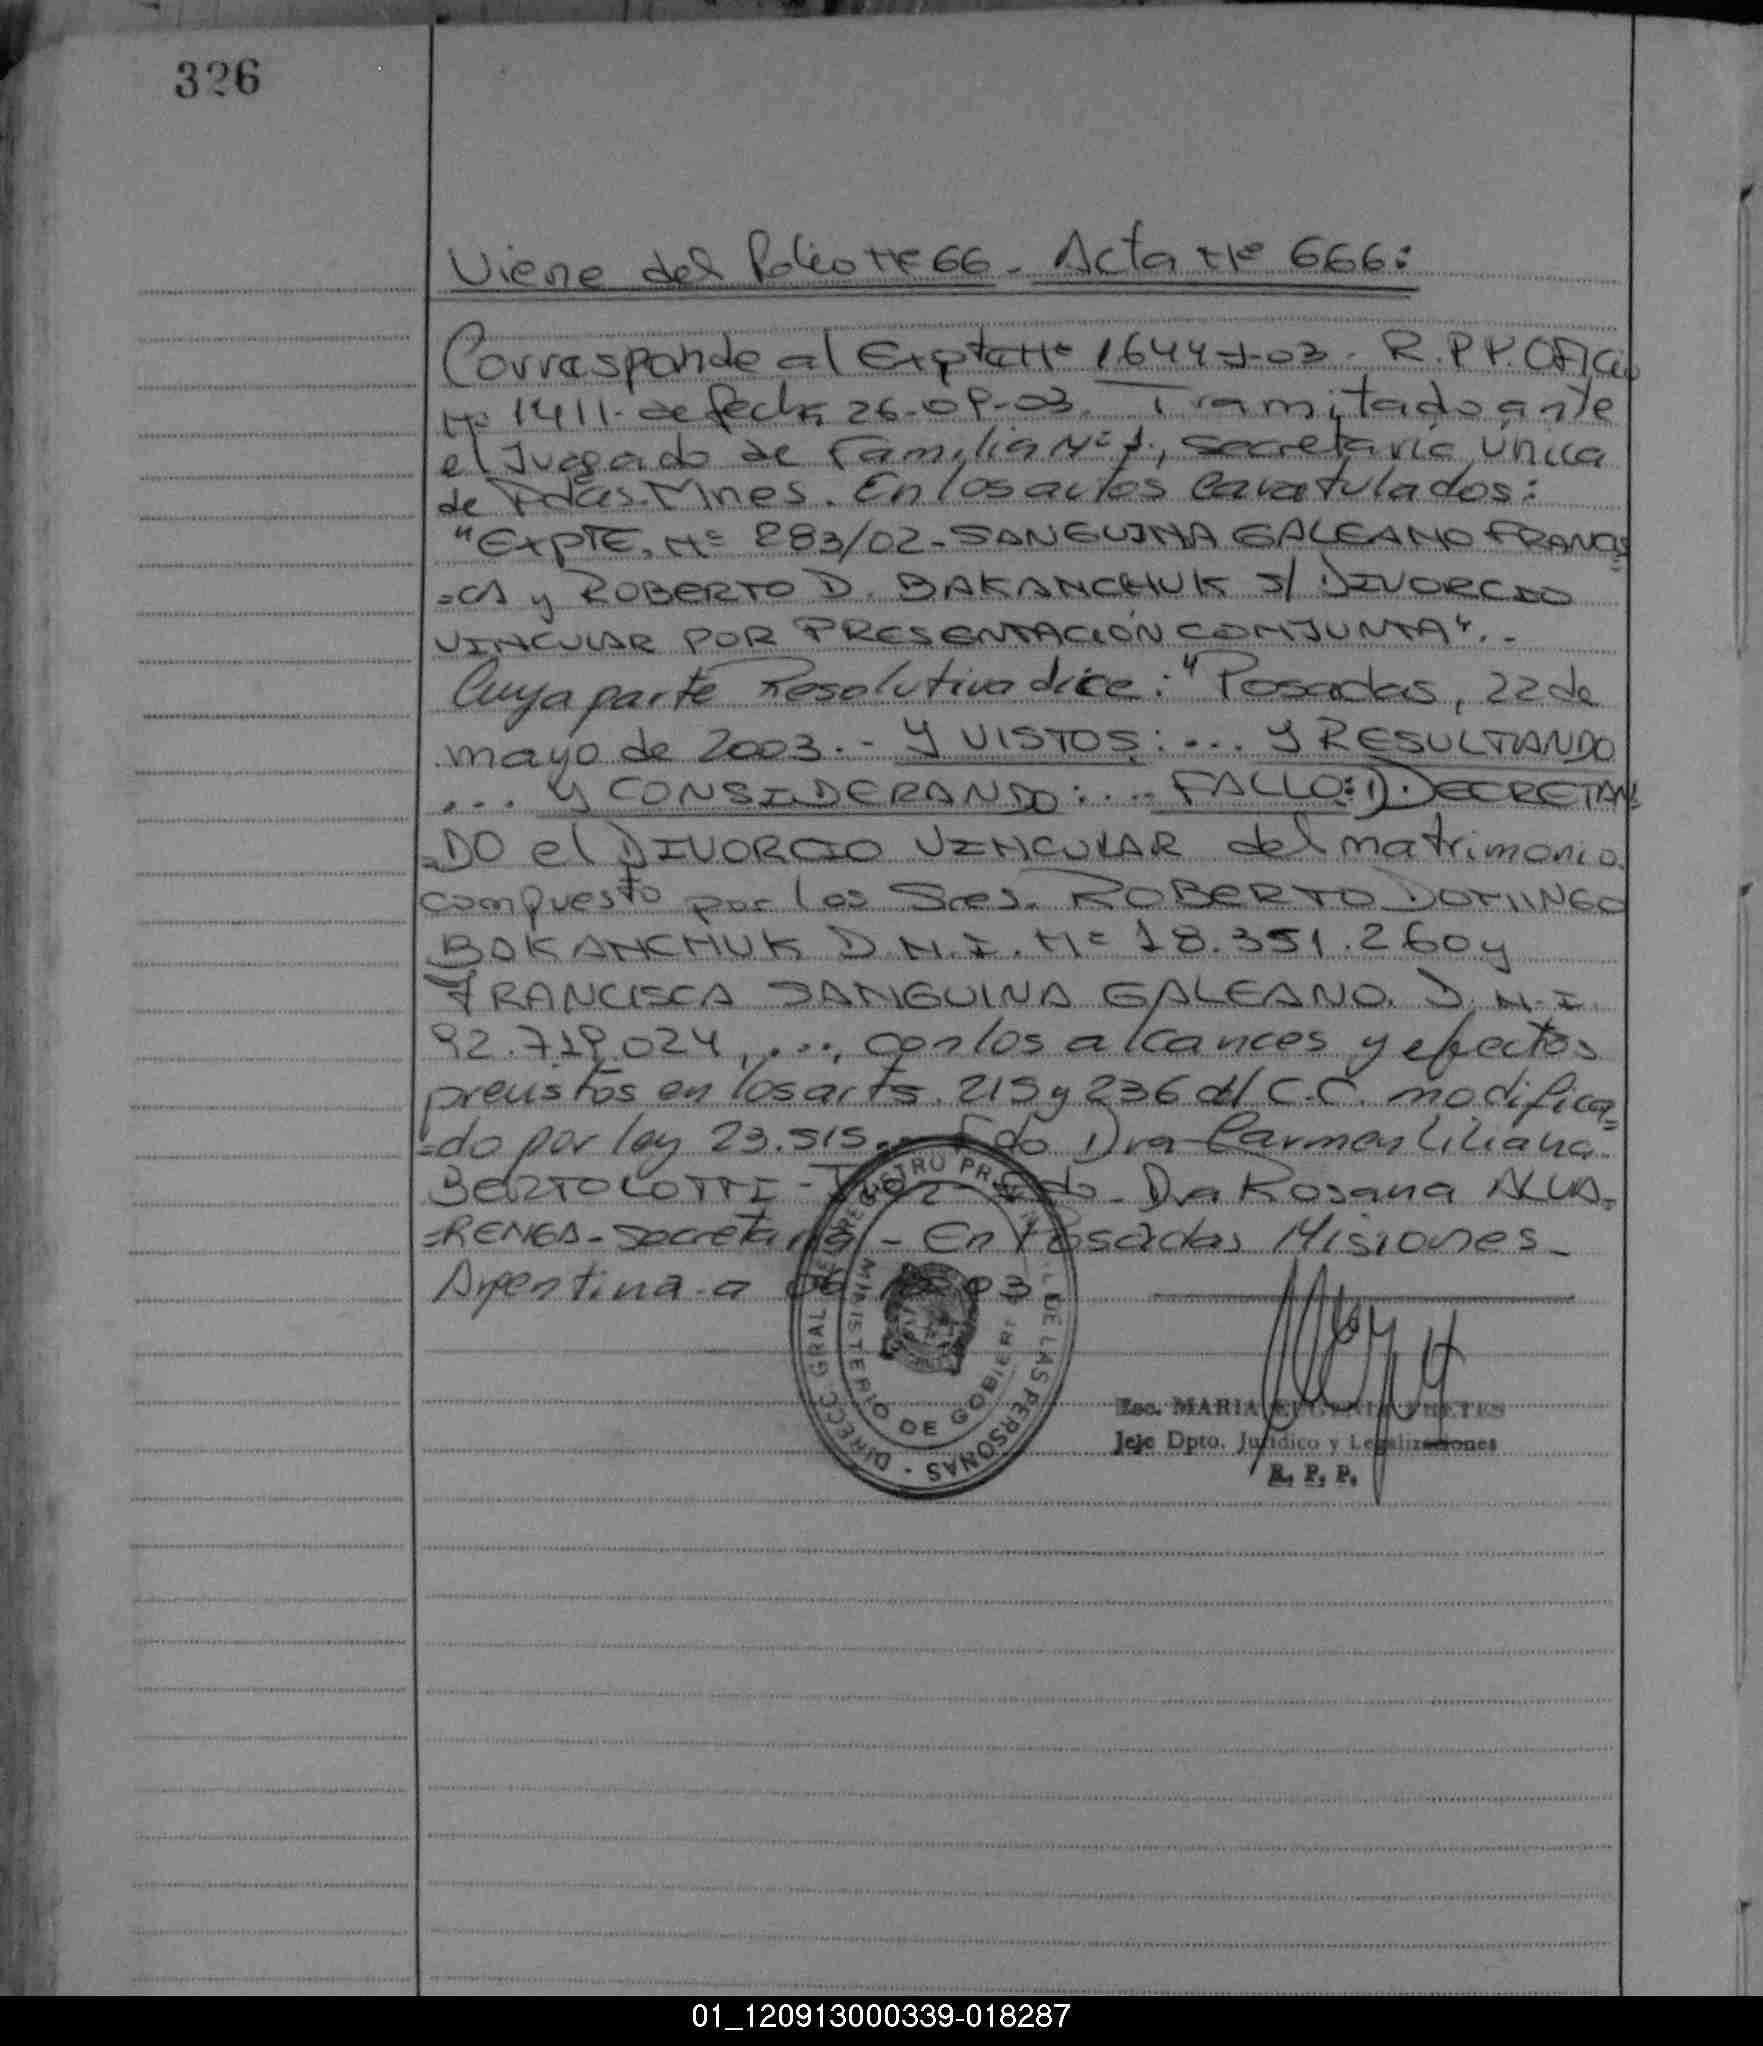 326
Viene del folio Nº 66 - Acta Nº 666:
Corresponde al Expte Nº 1644-J-03. R.P.P. Oficio
Nº 1411. de fecha 26-09-03. Tramitado ante
el Juzgado de Familia Nº 1, secretaria única
de Pdas. Mnes. En los autos Caratulados:
"EXPTE. Nº 283/02 - SANGUINA GALEANO FRANCIS
=CA y ROBERTO D. BAKANCHUK S/ DIVORCIO
VINCULAR POR PRESENTACIÓN CONJUNTA"..
Cuya parte Resolutiva dice: "Posadas, 22 de
mayo de 2003.- Y VISTOS: ... Y RESULTANDO
... Y CONSIDERANDO: ... FALLO: I) DECRETAN
=DO el DIVORCIO VINCULAR del matrimonio
compuesto por los Sres. ROBERTO DOMINGO
BAKANCHUK D.N.I. Nº 18.351.260 y
FRANCISCA SANGUINA GALEANO. D.N.I.
92.719.024, ..., con los alcances y efectos
previstos en los arts. 215 y 236 del C.C. modifica
=do por ley 23.515.- Fdo Dra Carmen Liliana
BERTOLOTTI - Fdo. Dra Rosana ALVA
=RENGA - secretaria - En Posadas Misiones
Argentina a 03
DIRECC. GRAL. DE REGISTRO PROVINCIAL DE LAS PERSONAS
MINISTERIO DE GOBIERNO
Esc. MARIA EUGENIA FRETES
Jefe Dpto. Jurídico y Legalizaciones
R. P. P.
01_120913000339-018287